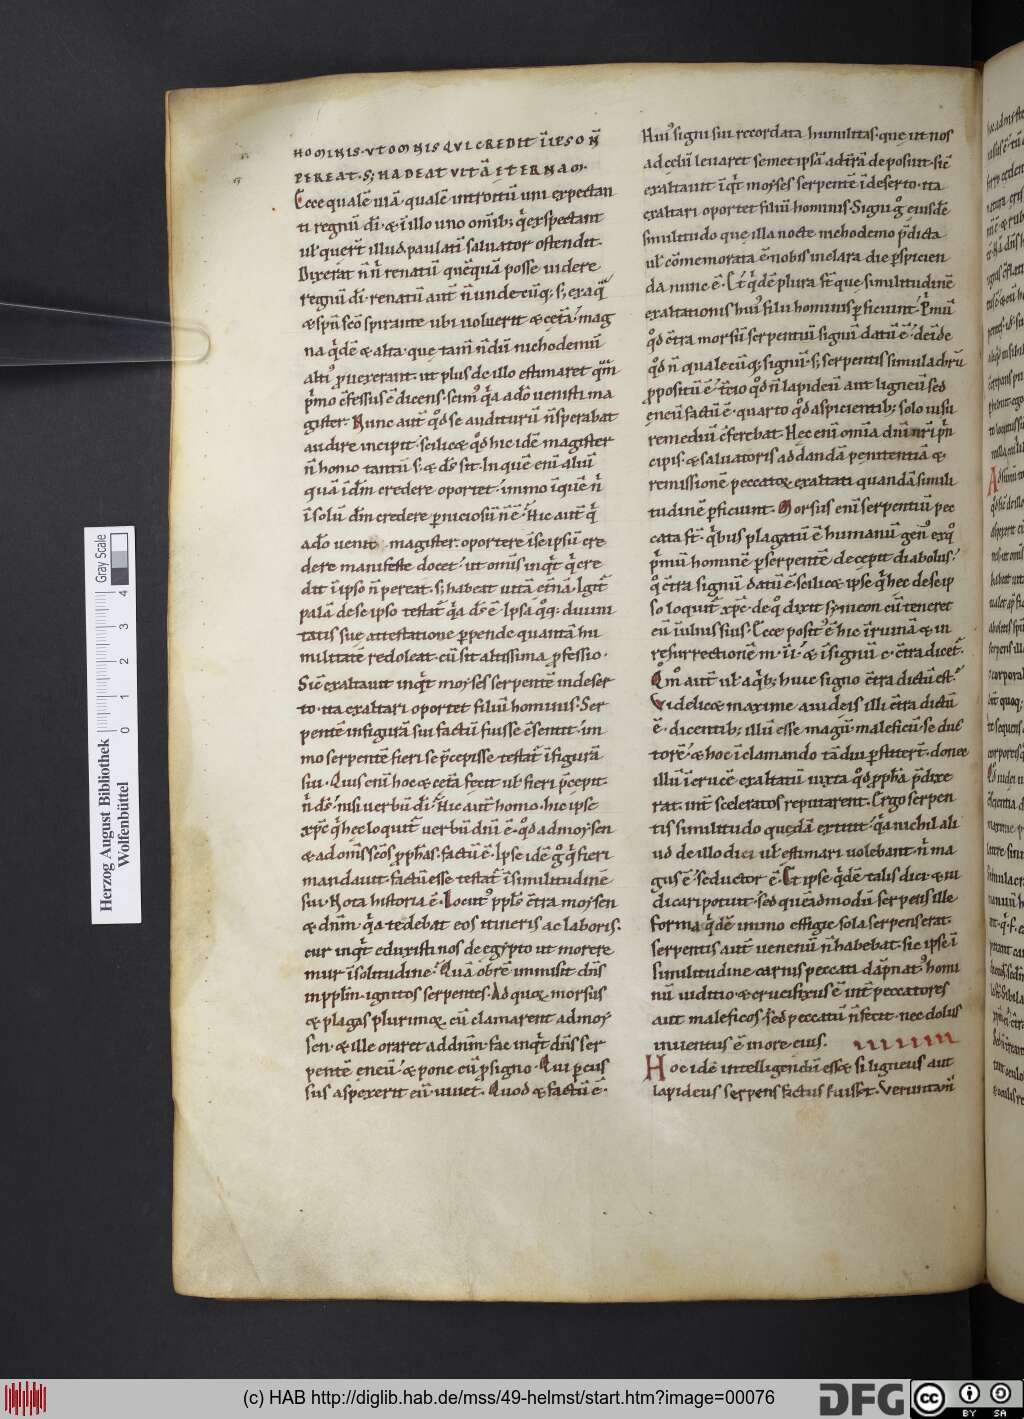 HOMINIS·UT OMNIS QUI CREDIT ĪIPSO N̄
PEREAT·S; HABEAT VITĀ ETERNAM·
Ecce qualē uiā·qualē introitū uni expectan
ti regnū dī·& ī illo uno omīb; q̄ exspectant
ul' querēt illud paulatī saluator ostendit·
Dixerat n̄ n̄ renatū quēquā posse uidere
regnū dī·renatū aut̄ n̄ undecūq; s; ex aq̄
& sp̄u sc̄o spirante ubi uoluerit & cet̄a·mag
na q̄dē & alta·que tam̄ n̄dū nichodemū
alti' ꝓuexerant·ut plus de illo estimaret qm̄
p̄mo c̄fessus ē dicens·scim' q̄a a dō uenisti ma
gister·Nunc aut̄ qd̄ se auditurū n̄ sperabat
audire incipit·scilic& qd̄ hic idē magister
n̄ homo tantū s; & d̄s sit·In quē enī aliū
quā ī dm̄ credere oportet·immo ī quē n̄
ī solū dm̄ credere ꝑniciosū n̄ ē·Hic aut̄ q̄
a dō uenit magister·oportere ī se ipsū cre
dere manifeste docet·ut om̄s inq̄t q̄ cre
dit ī ipso n̄ pereat·s; habeat uitā et̄nā·Igit̄
palā de se ipso testat̄ q̄a d̄s ē·Ipsā q̄q; diuini
tatis sue attestatione ꝑpende quantā hu
militatē redoleat·cū sit altissima ꝓfessio·
Sic exaltauit inq̄t moyses serpentē in deser
to·ita exaltari oportet filiū hominis·Ser
pentē in figurā sui factū fuisse c̄sentit·im
mo serpentē fieri se p̄cepisse·testat̄ ī figurā
sui·Quis enī hoc & cet̄a fecit ul' fieri p̄cepit·
n̄ d̄s·nisi uerbū dī·Hic aut̄ homo·hic ipse
xp̄c q̄ hec loquit̄ uerbū dn̄i ē·qd̄ ad moysen
& ad om̄s sc̄os ꝓph̄as·factū ē·Ipse idē g° q̄ fieri
mandauit·factū esse testat̄ ī similitudinē
sui·Nota historia ē·Locut' ppl's c̄tra moysen
& dnm̄·q̄a tedebat eos itineris ac laboris·
cur inq̄t eduxisti nos de egypto ut morere
mur ī solitudine·Quā obrē immisit dn̄s
in ppl̄m·ignitos serpentes·Ad quoꝝ morsus
& plagas plurimoꝝ cū clamarent ad moy
sen·& ille oraret ad dnm̄·fac inq̄t dn̄s ser
pentē eneū·& pone eū ꝓ signo·Qui ꝑcus
sus aspexerit eū·uiuet·Quod & factū ē·
Hui' signi sui recordata humilitas·que ut nos
ad celū leuaret semet ipsā ad t̄rā deposuit·sic
exaltauit īq̄t moyses serpentē ī deserto·ita
exaltari oportet filiū hominis·Signi g° eiusdē
similitudo que illa nocte nichodemo p̄dicta
ul' cōmemorata ē·nobis in clara die ꝑspicien
da nunc ē·Et q̄dē plura st̄ que similitudinē
exaltationis hui' filii hominis ꝑficiunt·P̄mū
qd̄ c̄tra morsū serpentiū signū datū ē·deīde
qd̄ n̄ qualecūq; signū·s; serpentis simulachrū
ꝓpositū ē·t̄cio qd̄ n̄ lapideū aut ligneū sed
eneū factū ē·quarto qd̄ aspicientib; solo uisu
remediū c̄ferebat·Hec enī omīa dn̄i nr̄i p̄n
cipis·& saluatoris ad dandā penitentiā &
remissionē peccatoꝝ exaltati quandā simili
tudinē ꝑficiunt·Morsus enī serpentiū pec
cata st̄·q̄bus plagatū ē humanū gen' ex q°
p̄mū hominē ꝑ serpentē decepit diabolus·
q° c̄tra signū datū ē·scilic& ipse q̄ hec de se ip
so loquit̄ xp̄c·de q° dixit symeon cū teneret
eū ī ulnis suis·Ecce posit' ē hic ī ruinā & in
resurrectionē m·ī·i·& ī signū c·c̄tradicet̄·
Qm° aut̄ ul' a q̄b; huic signo c̄tradictū est·
Videlic& maxime a iudeis illi c̄tradictū
ē·dicentib; illū esse magū·maleficū·seduc
torē·& hoc ī clamando tā diu ꝑstiterūt·donec
illū ī cruce exaltatū iuxta qd̄ ꝓph̄a p̄dixe
rat·int̄ sceleratos reputarent·Ergo serpen
tis similitudo quedā extitit·q̄a nichil ali
ud de illo dici ul' estimari uolebant·n̄ ma
gus ē·seductor ē·Et ipse q̄dē talis dici & iu
dicari potuit·sed quēadmodū serpens ille
forma q̄dē immo effigie sola serpens erat·
serpentis aut̄ uenenū n̄ habebat·sic ipse ī
similitudine carnis peccati dāpnat' homi
nū iuditio·& crucifixus ē int̄ peccatores
aut maleficos·sed peccatū n̄ fecit·nec dolus
inuentus ē in ore eius·
Hoc idē intelligendū esset si ligneus aut
lapideus serpens factus fuisset·Veruntam̄
Herzog August Bibliothek
Wolfenbüttel
Gray Scale
0 1 2 3 4
(c) HAB http://diglib.hab.de/mss/49-helmst/start.htm?image=00076
DFG
cc BY SA